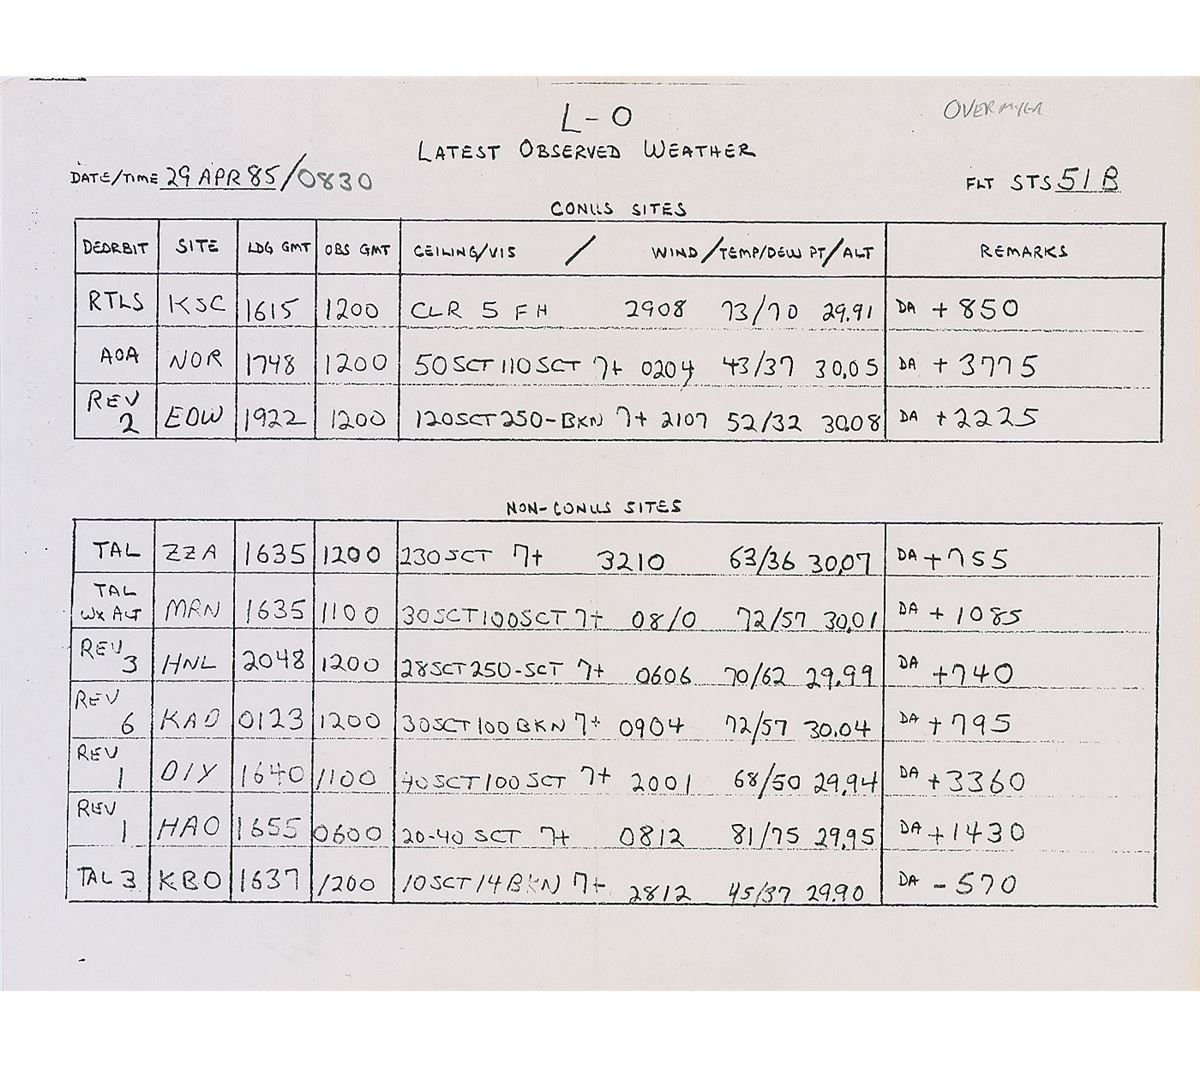 L-0
OVERMYER
LATEST OBSERVED WEATHER
DATE/TIME 29 APR 85/0830 FLT STS 51B
CONUS SITES
DEORBIT SITE LDG GMT OBS GMT CEILING/VIS / WIND/TEMP/DEW PT/ALT REMARKS
RTLS KSC 1615 1200 CLR 5 FH 2908 73/70 29.91 DA +850
AOA NOR 1748 1200 50SCT110SCT 7+ 0204 43/37 30.05 DA +3775
REV 2 EDW 1922 1200 120SCT250-BKN 7+ 2107 52/32 30.08 DA +2225
NON-CONUS SITES
TAL ZZA 1635 1200 230SCT 7+ 3210 63/36 30.07 DA +755
TAL WX ALT MRN 1635 1100 30SCT100SCT 7+ 0810 72/57 30.01 DA +1085
REV 3 HNL 2048 1200 28SCT250-SCT 7+ 0606 70/62 29.99 DA +740
REV 6 KAD 0123 1200 30SCT100BKN 7+ 0904 72/57 30.04 DA +795
REV 1 DIY 1640 1100 40SCT100SCT 7+ 2001 68/50 29.94 DA +3360
REV 1 HAO 1655 0600 20-40 SCT 7+ 0812 81/75 29.95 DA +1430
TAL 3 KBO 1637 1200 10SCT14BKN 7+ 2812 45/37 29.90 DA -570